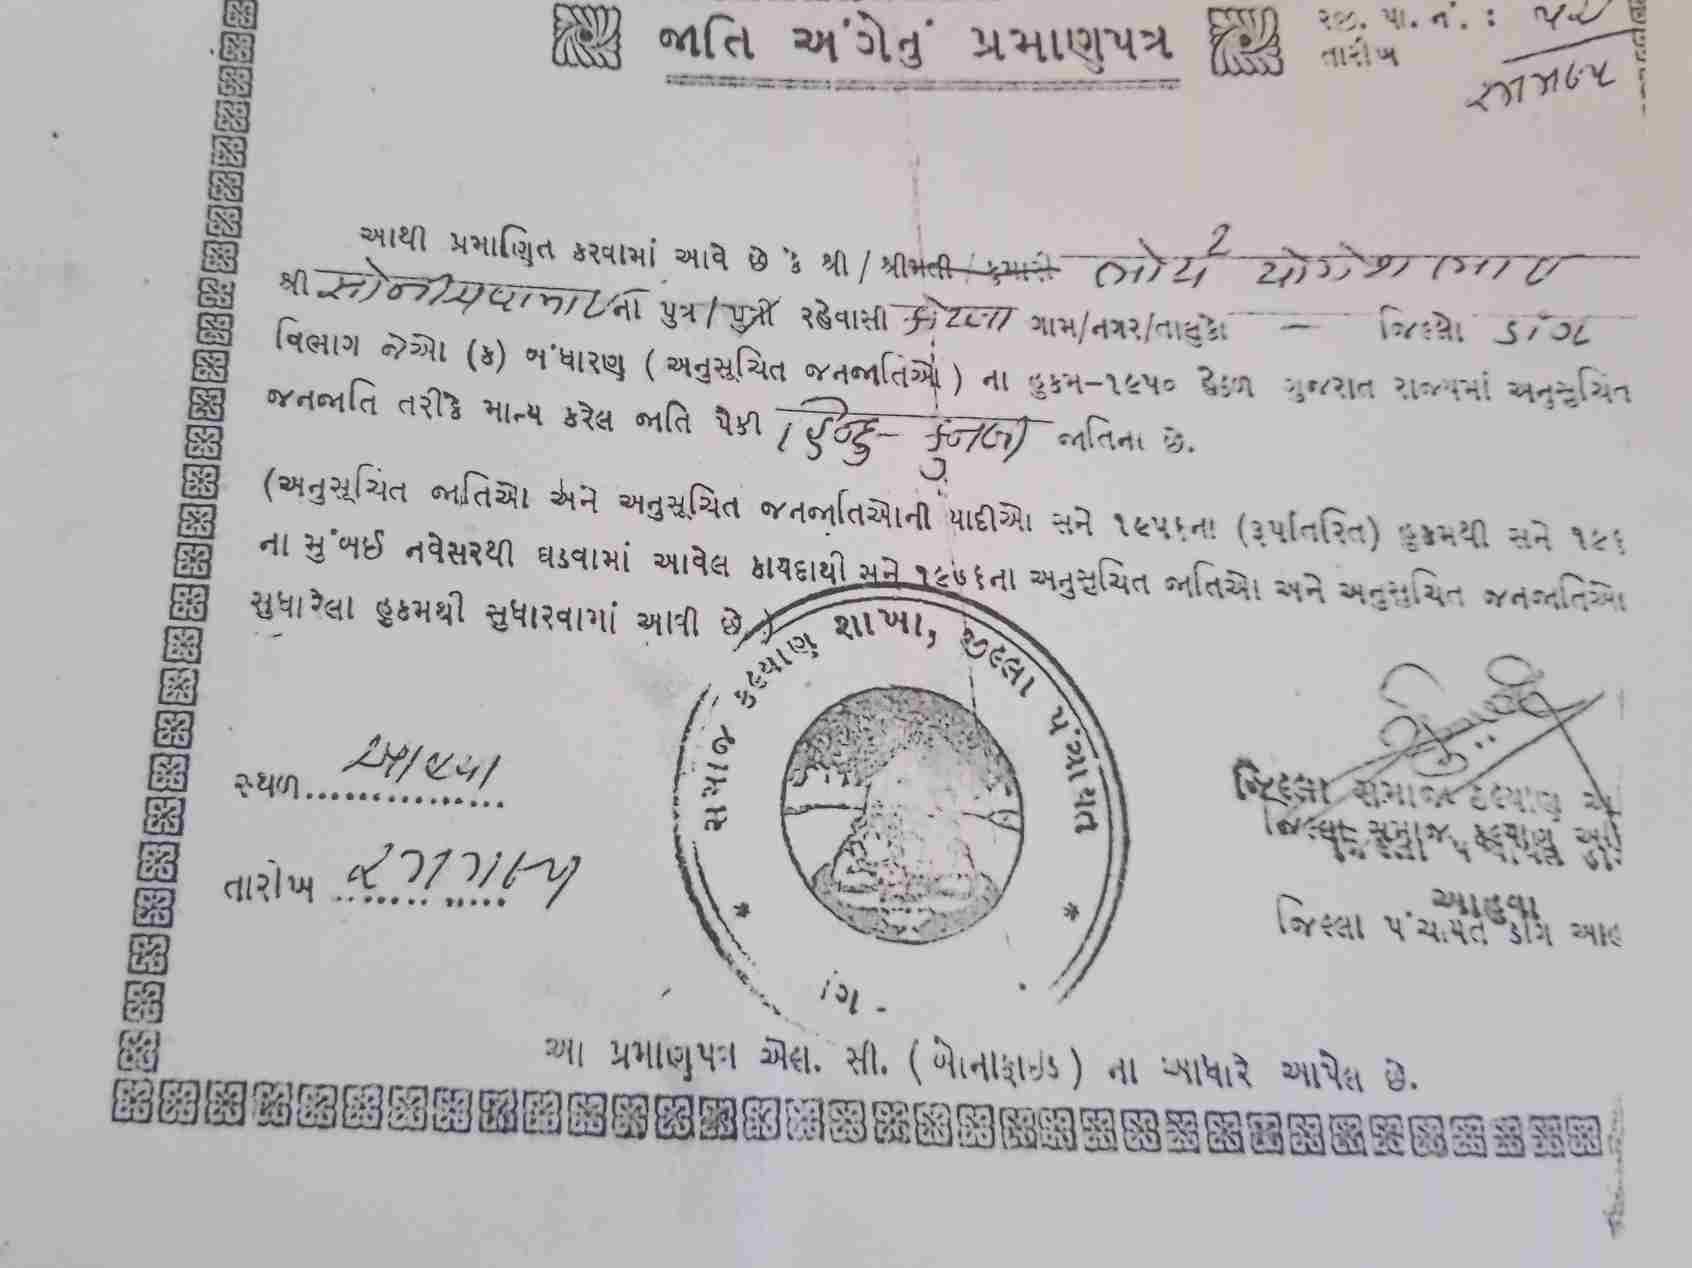 જાતિ અંગેનું પ્રમાણપત્ર
રજી. પા. નં. :
તારીખ
આથી પ્રમાણિત કરવામાં આવે છે કે શ્રી / શ્રીમતી / કુમારી ભોયે યોગેશભાઈ
શ્રી સોનીરાવભાઈ ના પુત્ર / પુત્રી રહેવાસી ગામ/નગર/તાલુકો — જિલ્લો ડાંગ
વિભાગ જેઓ (ક) બંધારણ ( અનુસૂચિત જનજાતિઓ ) ના હુકમ-૧૯૫૦ હેઠળ ગુજરાત રાજ્યમાં અનુસૂચિત
જનજાતિ તરીકે માન્ય કરેલ જાતિ પૈકી હિન્દુ - કુનબી જાતિના છે.
(અનુસૂચિત જાતિઓ અને અનુસૂચિત જનજાતિઓની યાદીઓ સને ૧૯૫૬ના (રૂપાંતરિત) હુકમથી સને ૧૯૬
ના મુંબઈ નવેસરથી ઘડવામાં આવેલ કાયદાથી સને ૧૯૭૬ના અનુસૂચિત જાતિઓ અને અનુસૂચિત જનજાતિઓ
સુધારેલા હુકમથી સુધારવામાં આવી છે.)
સમાજ કલ્યાણ શાખા, જીલ્લા પંચાયત
સ્થળ આહવા
તારીખ
જિલ્લા સમાજ કલ્યાણ અ
જિલ્લા સમાજ કલ્યાણ
આહવા
જિલ્લા પંચાયત ડાંગ આહ
આ પ્રમાણપત્ર એલ. સી. ( બોનાફાઇડ ) ના આધારે આપેલ છે.